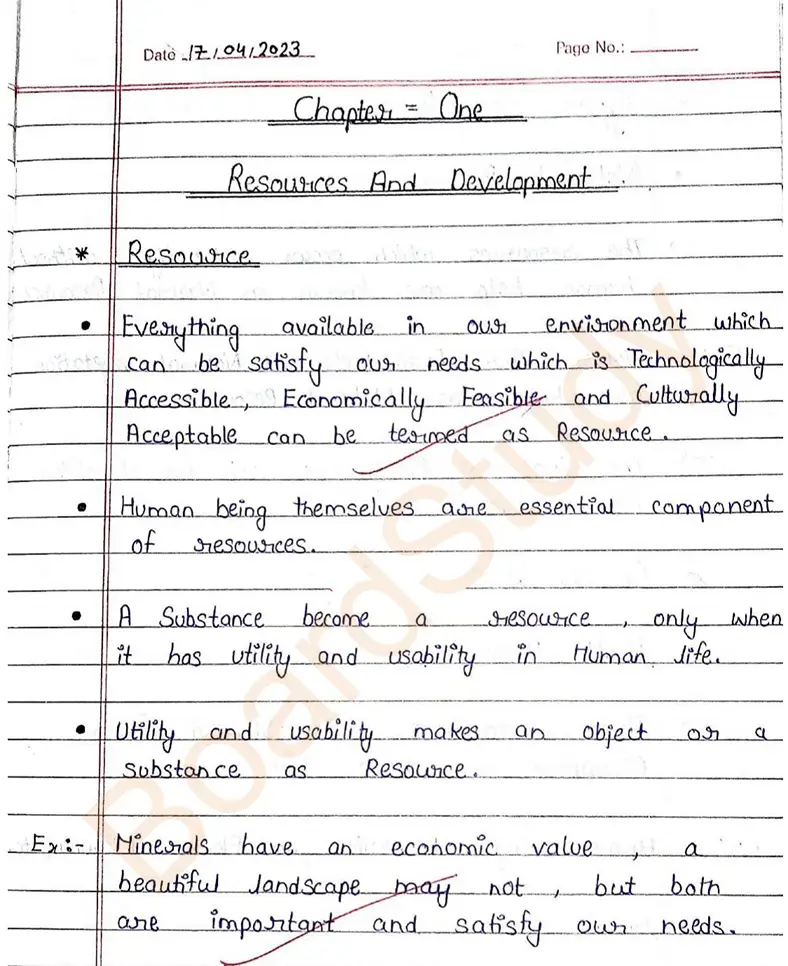 Date 17/04/2023 Page No.:
Chapter = One
Resources And Development
* Resource
• Everything available in our environment which
can be satisfy our needs which is Technologically
Accessible, Economically Feasible and Culturally
Acceptable can be termed as Resource.
• Human being themselves are essential component
of resources.
• A Substance become a resource, only when
it has utility and usability in Human life.
• Utility and usability makes an object or a
substance as Resource.
Ex:- Minerals have an economic value, a
beautiful landscape may not, but both
are important and satisfy our needs.
BoardStudy